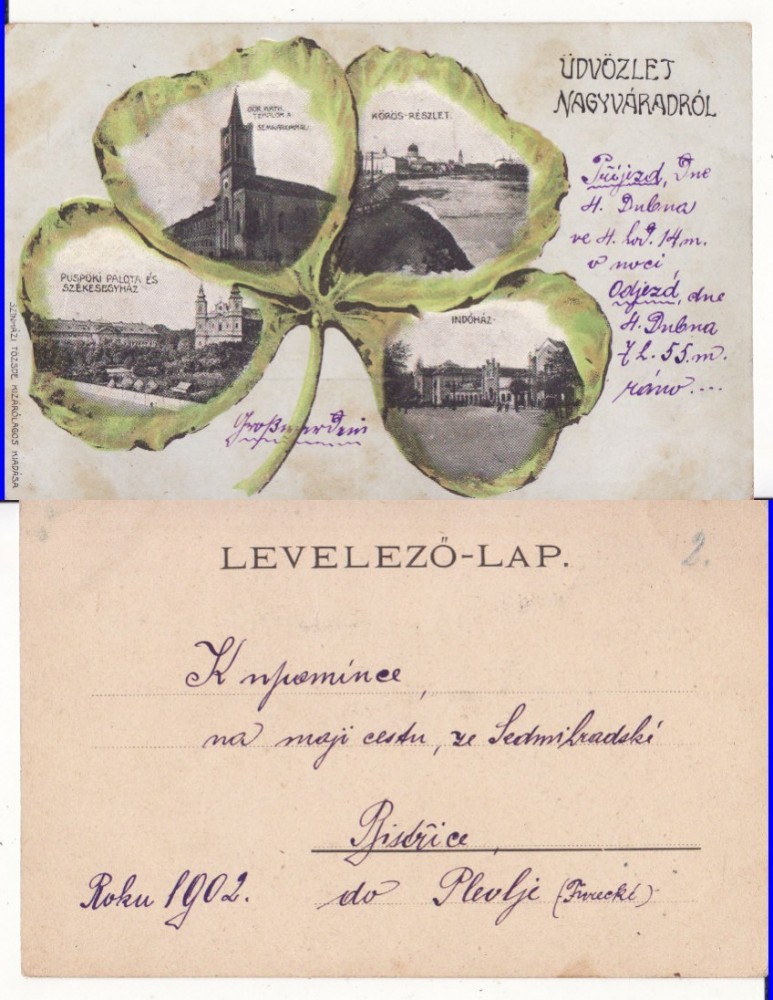 ÜDVÖZLET
NAGYVÁRADRÓL
GÖR. KATH.
TEMPLOM A
SEMINÁRIUMMAL.
KÖRÖS-RÉSZLET.
PÜSPÖKI PALOTA ÉS
SZÉKESEGYHÁZ
INDÓHÁZ
Příjezd, Dne
4. Dubna
ve 4. hod. 14 m.
v noci
Odjezd, dne
4. Dubna
7 h. 55. m.
ráno....
Großwardein
TŐZSDE KIZÁRÓLAGOS KIADÁSA
LEVELEZŐ-LAP.
2.
K upomínce,
na moji cestu, ze Sedmihradské
Bistřice,
Roku 1902. do Plevlje (Turecké)